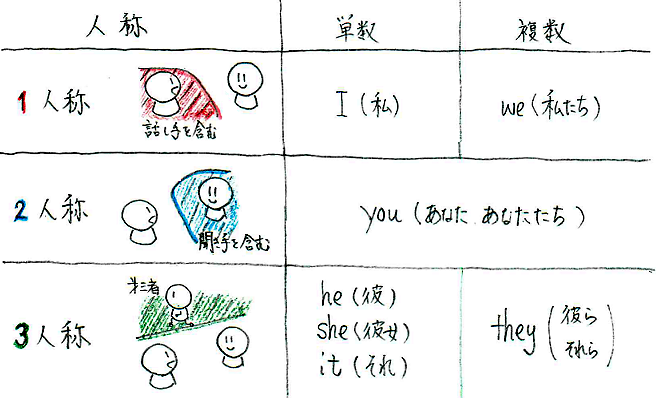 人称 単数 複数
1人称 話し手を含む I(私) we(私たち)
2人称 聞き手を含む you(あなた あなたたち)
第三者
3人称 he(彼) she(彼女) it(それ) they(彼ら それら)